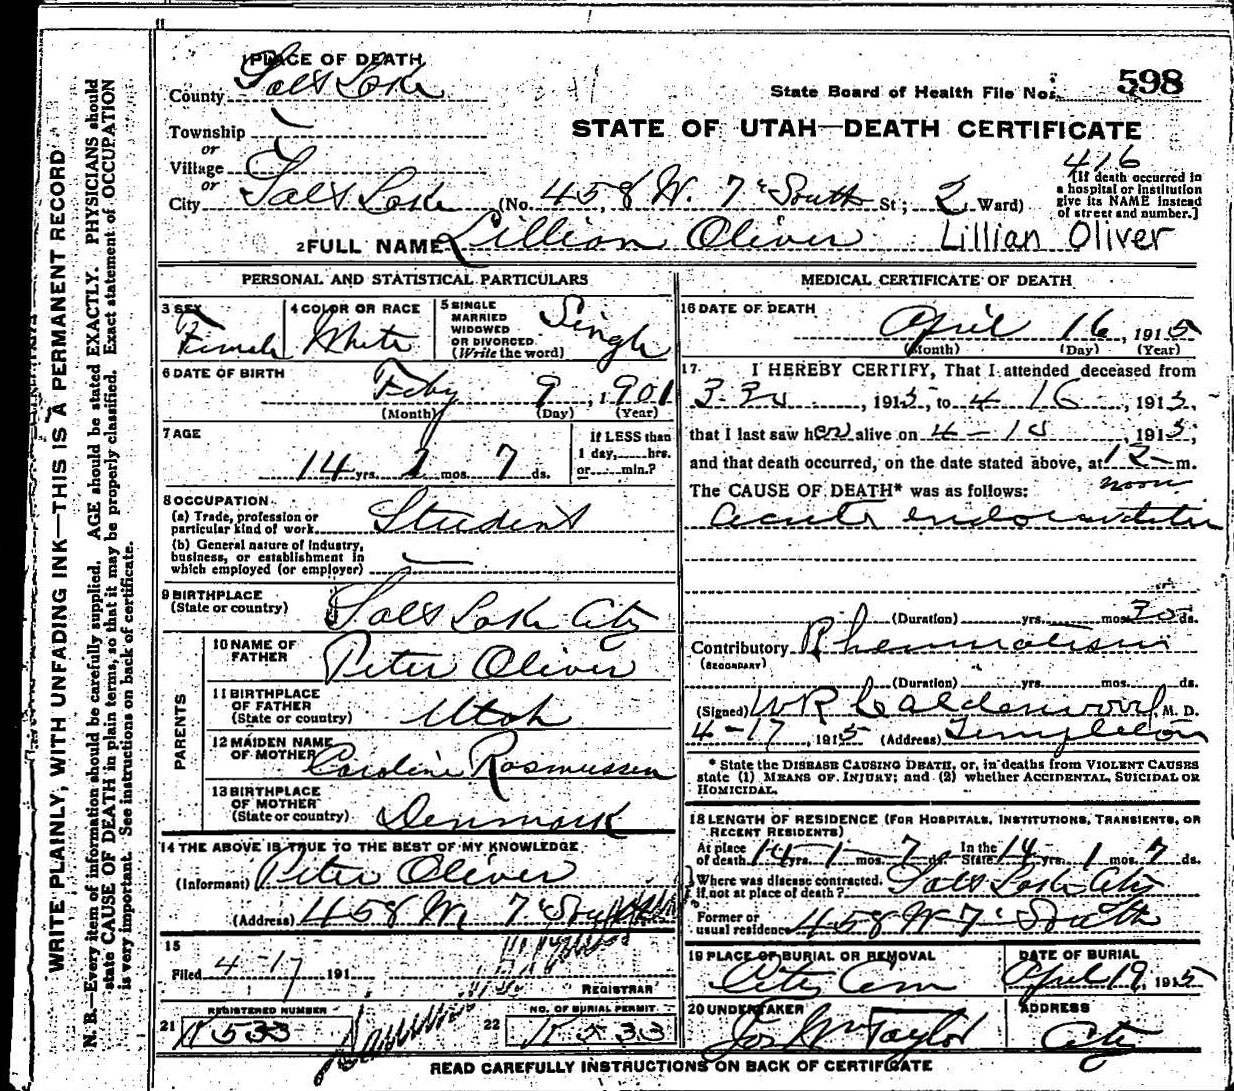 1 PLACE OF DEATH
County Salt Lake
State Board of Health File No. 598
Township
or
Village
or
City Salt Lake (No. 458 W. 7 South St; 2 Ward)
STATE OF UTAH—DEATH CERTIFICATE
416
[If death occurred in
a hospital or institution
give its NAME instead
of street and number.]
2 FULL NAME Lillian Oliver Lillian Oliver
PERSONAL AND STATISTICAL PARTICULARS
3 SEX Female
4 COLOR OR RACE White
5 SINGLE
MARRIED
WIDOWED
OR DIVORCED
(Write the word) Single
6 DATE OF BIRTH Feby 9, 1901
(Month) (Day) (Year)
7 AGE
14 yrs. 2 mos. 7 ds.
If LESS than
1 day, hrs.
or min.?
8 OCCUPATION
(a) Trade, profession or
particular kind of work Student
(b) General nature of industry,
business, or establishment in
which employed (or employer)
9 BIRTHPLACE
(State or country) Salt Lake City
PARENTS
10 NAME OF
FATHER Peter Oliver
11 BIRTHPLACE
OF FATHER
(State or country) Utah
12 MAIDEN NAME
OF MOTHER Caroline Rasmussen
13 BIRTHPLACE
OF MOTHER
(State or country) Denmark
14 THE ABOVE IS TRUE TO THE BEST OF MY KNOWLEDGE
(Informant) Peter Oliver
(Address) 458 W 7 South
15
Filed 4-17 191
REGISTRAR
21 REGISTERED NUMBER
K 533
22 NO. OF BURIAL PERMIT
K 533
MEDICAL CERTIFICATE OF DEATH
16 DATE OF DEATH
April 16, 1915
(Month) (Day) (Year)
17 I HEREBY CERTIFY, That I attended deceased from
, 1915, to 4 16, 1915,
that I last saw her alive on 4-, 1915,
and that death occurred, on the date stated above, at 12 m.
noon
The CAUSE OF DEATH* was as follows:
acute endocarditis
(Duration) yrs. mos. ds.
Contributory Rheumatism
(SECONDARY)
(Duration) yrs. mos. ds.
(Signed) W R Calderwood, M. D.
4-17, 1915 (Address) Templeton
* State the DISEASE CAUSING DEATH, or, in deaths from VIOLENT CAUSES
state (1) MEANS OF INJURY; and (2) whether ACCIDENTAL, SUICIDAL OR
HOMICIDAL.
18 LENGTH OF RESIDENCE (FOR HOSPITALS, INSTITUTIONS, TRANSIENTS, OR
RECENT RESIDENTS)
At place
of death 14 yrs. 1 mos. 7 ds. In the
State 14 yrs. 1 mos. 7 ds.
Where was disease contracted,
if not at place of death? Salt Lake City
Former or
usual residence 458 W 7 South
19 PLACE OF BURIAL OR REMOVAL
City Cem
DATE OF BURIAL
April 19, 1915
20 UNDERTAKER
Jos Wm Taylor
ADDRESS
City
READ CAREFULLY INSTRUCTIONS ON BACK OF CERTIFICATE
WRITE PLAINLY, WITH UNFADING INK—THIS IS A PERMANENT RECORD
N. B.—Every item of information should be carefully supplied. AGE should be stated EXACTLY. PHYSICIANS should
state CAUSE OF DEATH in plain terms, so that it may be properly classified. Exact statement of OCCUPATION
is very important. See instructions on back of certificate.